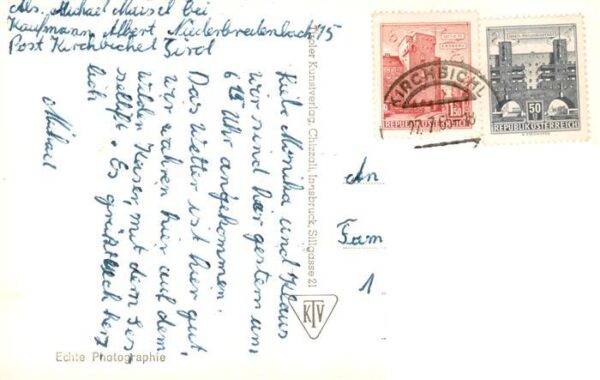 Abs. Michael Maisel bei
Kaufmann Albert Niederbreitenbach 75
Post Kirchbichel Tirol
Liebe Monika und Klaus
wir sind hir gestern um
6 15 Uhr angekommen.
Das Wetter ist hir gut,
wir wahren hir auf dem
wilden Keiser, mit dem Ses
sellift. Es grüßt euch herz
lich
Michael
Echte Photographie
Tiroler Kunstverlag, Chizzali, Innsbruck, Sillgasse 21
KTV
REPUBLIK ÖSTERREICH
1.50
REPUBLIK ÖSTERREICH
50
KIRCHBICHL
An
Fam
1